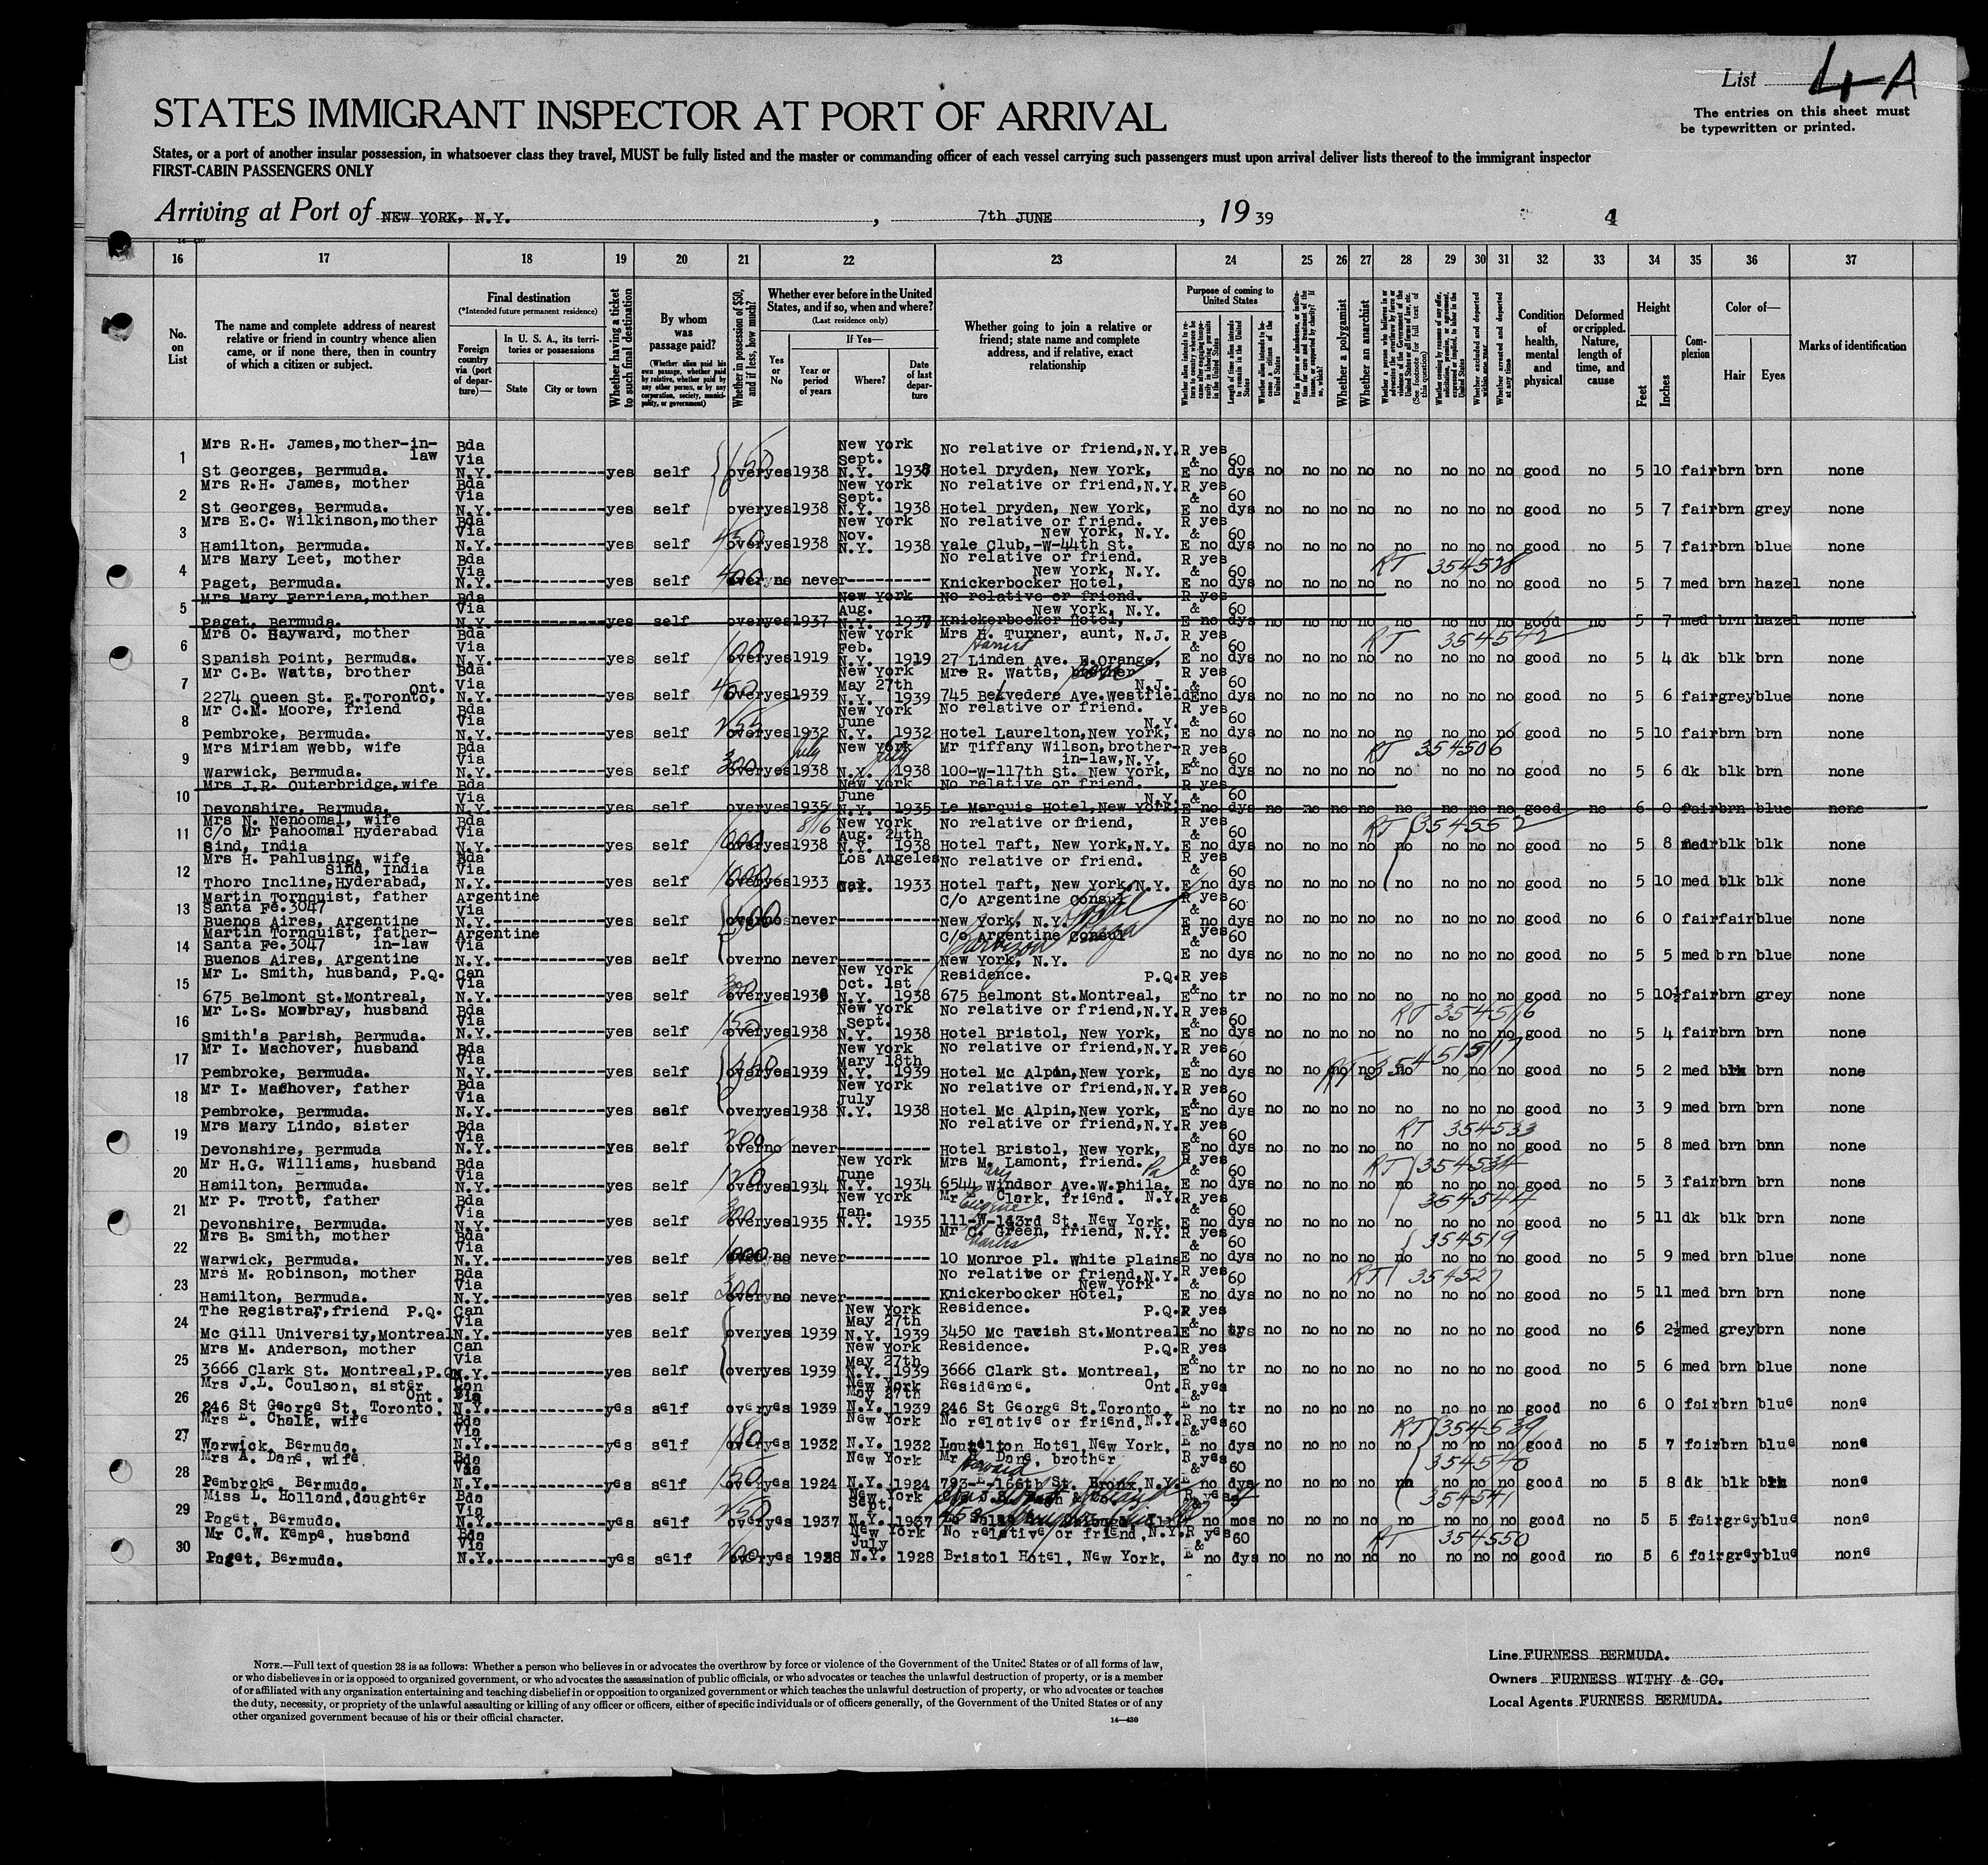 List 4-A
The entries on this sheet must
be typewritten or printed.
STATES IMMIGRANT INSPECTOR AT PORT OF ARRIVAL
States, or a port of another insular possession, in whatsoever class they travel, MUST be fully listed and the master or commanding officer of each vessel carrying such passengers must upon arrival deliver lists thereof to the immigrant inspector
FIRST-CABIN PASSENGERS ONLY
Arriving at Port of NEW YORK, N.Y. , 7th JUNE , 19 39
4
16 17 18 19 20 21 22 23 24 25 26 27 28 29 30 31 32 33 34 35 36 37
No. on List
The name and complete address of nearest relative or friend in country whence alien came, or if none there, then in country of which a citizen or subject.
Final destination
(*Intended future permanent residence)
Foreign country via (port of departure)—
In U. S. A., its territories or possessions
State
City or town
Whether having a ticket to such final destination
By whom was passage paid?
(Whether alien paid his own passage, whether paid by relative, whether paid by any other person, or by any corporation, society, municipality, or government)
Whether in possession of $50, and if less, how much?
Whether ever before in the United States, and if so, when and where?
(Last residence only)
Yes or No
If Yes—
Year or period of years
Where?
Date of last departure
Whether going to join a relative or friend; state name and complete address, and if relative, exact relationship
Purpose of coming to United States
Length of time alien intends to remain in the United States
Whether alien intends to become a citizen of the United States
Whether a polygamist
Whether an anarchist
Whether excluded and deported within one year
Whether arrested and deported at any time
Condition of health, mental and physical
Deformed or crippled. Nature, length of time, and cause
Height
Feet
Inches
Complexion
Color of—
Hair
Eyes
Marks of identification
1 Mrs R.H. James, mother-in-law St Georges, Bermuda. Bda Via N.Y. yes self over yes 1938 New York Sept. N.Y. 1938 No relative or friend, N.Y. Hotel Dryden, New York, R yes & E no 60 dys no no no no no no no no good no 5 10 fair brn brn none
2 Mrs R.H. James, mother St Georges, Bermuda. Bda Via N.Y. yes self over yes 1938 New York Sept. N.Y. 1938 No relative or friend, N.Y. Hotel Dryden, New York, R yes & E no 60 dys no no no no no no no no good no 5 7 fair brn grey none
3 Mrs E.C. Wilkinson, mother Hamilton, Bermuda. Bda Via N.Y. yes self 450 over yes 1938 New York Nov. N.Y. 1938 No relative or friend. New York, N.Y. Yale Club,-W-44th St. R yes & E no 60 dys no no no no no no no no good no 5 7 fair brn blue none
4 Mrs Mary Leet, mother Paget, Bermuda. Bda Via N.Y. yes self 400 over no never No relative or friend. New York, N.Y. Knickerbocker Hotel, R yes & E no 60 dys no no no no RT 354528 no no no no good no 5 7 med brn hazel none
5 Mrs Mary Ferriera, mother Paget, Bermuda. Bda Via N.Y. yes self over yes 1937 New York Aug. N.Y. 1937 No relative or friend. New York, N.Y. Knickerbocker Hotel, R yes & E no 60 dys no no no no no no no no good no 5 7 med brn hazel none
6 Mrs O. Hayward, mother Spanish Point, Bermuda. Bda Via N.Y. yes self 100 over yes 1919 New York Feb. N.Y. 1919 Mrs H. Turner, aunt, N.J. 27 Linden Ave. E.Orange, R yes & E no 60 dys no no no no RT 354542 no no no no good no 5 4 dk blk brn none
7 Mr C.B. Watts, brother Ont. 2274 Queen St. E.Toronto, Bda Via N.Y. yes self 400 over yes 1939 New York May 27th N.Y. 1939 Mrs R. Watts, N.J. 745 Belvedere Ave.Westfield R yes & E no 60 dys no no no no no no no no good no 5 6 fair grey blue none
8 Mr C.M. Moore, friend Pembroke, Bermuda. Bda Via N.Y. yes self 255 over yes 1932 New York June N.Y. 1932 No relative or friend. N.Y. Hotel Laurelton, New York, R yes & E no 60 dys no no no no no no no no good no 5 10 fair brn brn none
9 Mrs Miriam Webb, wife Warwick, Bermuda. Bda Via N.Y. yes self 300 over yes July 1938 New York July N.Y. 1938 Mr Tiffany Wilson, brother-in-law, N.Y. 100-W-117th St. New York, R yes & E no 60 dys no no no no RT 354506 no no no no good no 5 6 dk blk brn none
10 Mrs J.R. Outerbridge, wife Devonshire, Bermuda. Bda Via N.Y. yes self over yes 1935 New York June N.Y. 1935 No relative or friend. N.Y. Le Marquis Hotel, New York, R yes & E no 60 dys no no no no no no no no good no 6 0 fair brn blue none
11 Mrs N. Nenoomal, wife C/o Mr Pahoomal Hyderabad Sind, India Bda Via N.Y. yes self 1000 over yes 8/16 1938 New York Aug. 24th N.Y. 1938 No relative or friend, Hotel Taft, New York, N.Y. R yes & E no 60 dys no no no no RT 354552 no no no no good no 5 8 blk blk none
12 Mrs H. Pahlusing, wife Sind, India Thoro Incline, Hyderabad, Bda Via N.Y. yes self 1000 over yes 1933 Los Angeles Cal. 1933 No relative or friend. Hotel Taft, New York, N.Y. R yes & E no 60 dys no no no no no no no no good no 5 10 med blk blk none
13 Martin Tornquist, father Santa Fe.3047 Buenos Aires, Argentine Argentine Via N.Y. yes self 500 over no never C/o Argentine Consul New York, N.Y. R yes & E no 60 dys no no no no no no no no good no 6 0 fair fair blue none
14 Martin Tornquist, father-in-law Santa Fe.3047 Buenos Aires, Argentine Argentine Via N.Y. yes self over no never C/o Argentine Consul New York, N.Y. Barbizon Plaza Hotel R yes & E no 60 dys no no no no no no no no good no 5 5 med brn blue none
15 Mr L. Smith, husband, P.Q. 675 Belmont St.Montreal, Can Via N.Y. yes self 300 over yes 1938 New York Oct. 1st N.Y. 1938 Residence. P.Q. 675 Belmont St.Montreal, R yes & E no tr no no no no no no no no good no 5 10½ fair brn grey none
16 Mr L.S. Mowbray, husband Smith's Parish, Bermuda. Bda Via N.Y. yes self 150 over yes 1938 New York Sept. N.Y. 1938 No relative or friend, N.Y. Hotel Bristol, New York, R yes & E no 60 dys no no no no RT 354516 no no no no good no 5 4 fair brn brn none
17 Mr I. Machover, husband Pembroke, Bermuda. Bda Via N.Y. yes self over yes 1939 New York Mary 18th N.Y. 1939 No relative or friend, N.Y. Hotel Mc Alpin, New York, R yes & E no 60 dys no no no no no no no no good no 5 2 med brn none
18 Mr I. Machover, father Pembroke, Bermuda. Bda Via N.Y. yes self over yes 1938 New York July N.Y. 1938 No relative or friend, N.Y. Hotel Mc Alpin, New York, R yes & E no 60 dys no no no no no no no no good no 3 9 med brn brn none
19 Mrs Mary Lindo, sister Devonshire, Bermuda Bda Via N.Y. yes self 200 over no never No relative or friend, N.Y. Hotel Bristol, New York, R yes & E no 60 dys no no no no RT 354533 no no no no good no 5 8 med brn bnn none
20 Mr H.G. Williams, husband Hamilton, Bermuda. Bda Via N.Y. yes self 120 over yes 1934 New York June N.Y. 1934 Mrs M. Lamont, friend. Pa 6544 Windsor Ave.W.phila. R yes & E no 60 dys no no no no RT 354534 no no no no good no 5 3 fair brn brn none
21 Mr P. Trott, father Devonshire, Bermuda. Bda Via N.Y. yes self 300 over yes 1935 New York Jan. N.Y. 1935 Mr E. Clark, friend. N.Y. Eugene 111-W-143rd St. New York, R yes & E no 60 dys no no no no 354544 no no no no good no 5 11 dk blk brn none
22 Mrs B. Smith, mother Warwick, Bermuda. Bda Via N.Y. yes self 1000 no never Mr C. Green, friend, N.Y. Charles 10 Monroe Pl. White Plains R yes & E no 60 dys no no no no 354519 no no no no good no 5 9 med brn blue none
23 Mrs M. Robinson, mother Hamilton, Bermuda. Bda Via N.Y. yes self 300 over no never No relative or friend, N.Y. New York Knickerbocker Hotel, R yes & E no 60 dys no no no no RT 354527 no no no no good no 5 11 med brn brn none
24 The Registrar, friend P.Q. Mc Gill University, Montreal Can Via N.Y. yes self over yes 1939 New York May 27th N.Y. 1939 Residence. P.Q. 3450 Mc Tavish St.Montreal R yes & E no tr no no no no no no no no good no 6 2½ med grey brn none
25 Mrs M. Anderson, mother 3666 Clark St. Montreal, P.Q. Can Via N.Y. yes self over yes 1939 New York May 27th N.Y. 1939 Residence. P.Q. 3666 Clark St. Montreal, R yes & E no tr no no no no no no no no good no 5 6 med brn blue none
26 Mrs J.L. Coulson, sister Ont. 246 St George St, Toronto, Can Via N.Y. yes self over yes 1939 New York May 27th N.Y. 1939 Residence. Ont. 246 St George St.Toronto R yes & E no tr no no no no no no no no good no 6 0 fair brn blue none
27 Mrs E. Chalk, wife Warwick, Bermuda. Bda Via N.Y. yes self 180 over yes 1932 New York N.Y. 1932 No relative or friend, N.Y. Laurelton Hotel, New York, R yes & E no 60 dys no no no no RT 354539 no no no no good no 5 7 fair brn blue none
28 Mrs A. Dane, wife Pembroke, Bermuda. Bda Via N.Y. yes self 150 over yes 1924 New York N.Y. 1924 Mr Dane, brother Howard 166th St. Bronx, N.Y. R yes & E no 60 dys no no no no 354540 no no no good no 5 8 dk blk none
29 Miss L. Holland, daughter Paget, Bermuda. Bda Via N.Y. yes self 250 over yes 1937 New York Sept. N.Y. 1937 R yes no mos no no no no 354541 no no no no good no 5 5 fair grey blue none
30 Mr C.W. Kempe, husband Paget, Bermuda. Bda Via N.Y. yes self 200 over yes 1928 New York July N.Y. 1928 No relative or friend, N.Y. Bristol Hotel, New York, R yes & E no 60 dys no no no no RT 354550 no no no no good no 5 6 fair grey blue none
NOTE.—Full text of question 28 is as follows: Whether a person who believes in or advocates the overthrow by force or violence of the Government of the United States or of all forms of law,
or who disbelieves in or is opposed to organized government, or who advocates the assassination of public officials, or who advocates or teaches the unlawful destruction of property, or is a member
of or affiliated with any organization entertaining and teaching disbelief in or opposition to organized government or which teaches the unlawful destruction of property, or who advocates or teaches
the duty, necessity, or propriety of the unlawful assaulting or killing of any officer or officers, either of specific individuals or of officers generally, of the Government of the United States or of any
other organized government because of his or their official character.
14—430
Line FURNESS BERMUDA.
Owners FURNESS WITHY & CO.
Local Agents FURNESS BERMUDA.